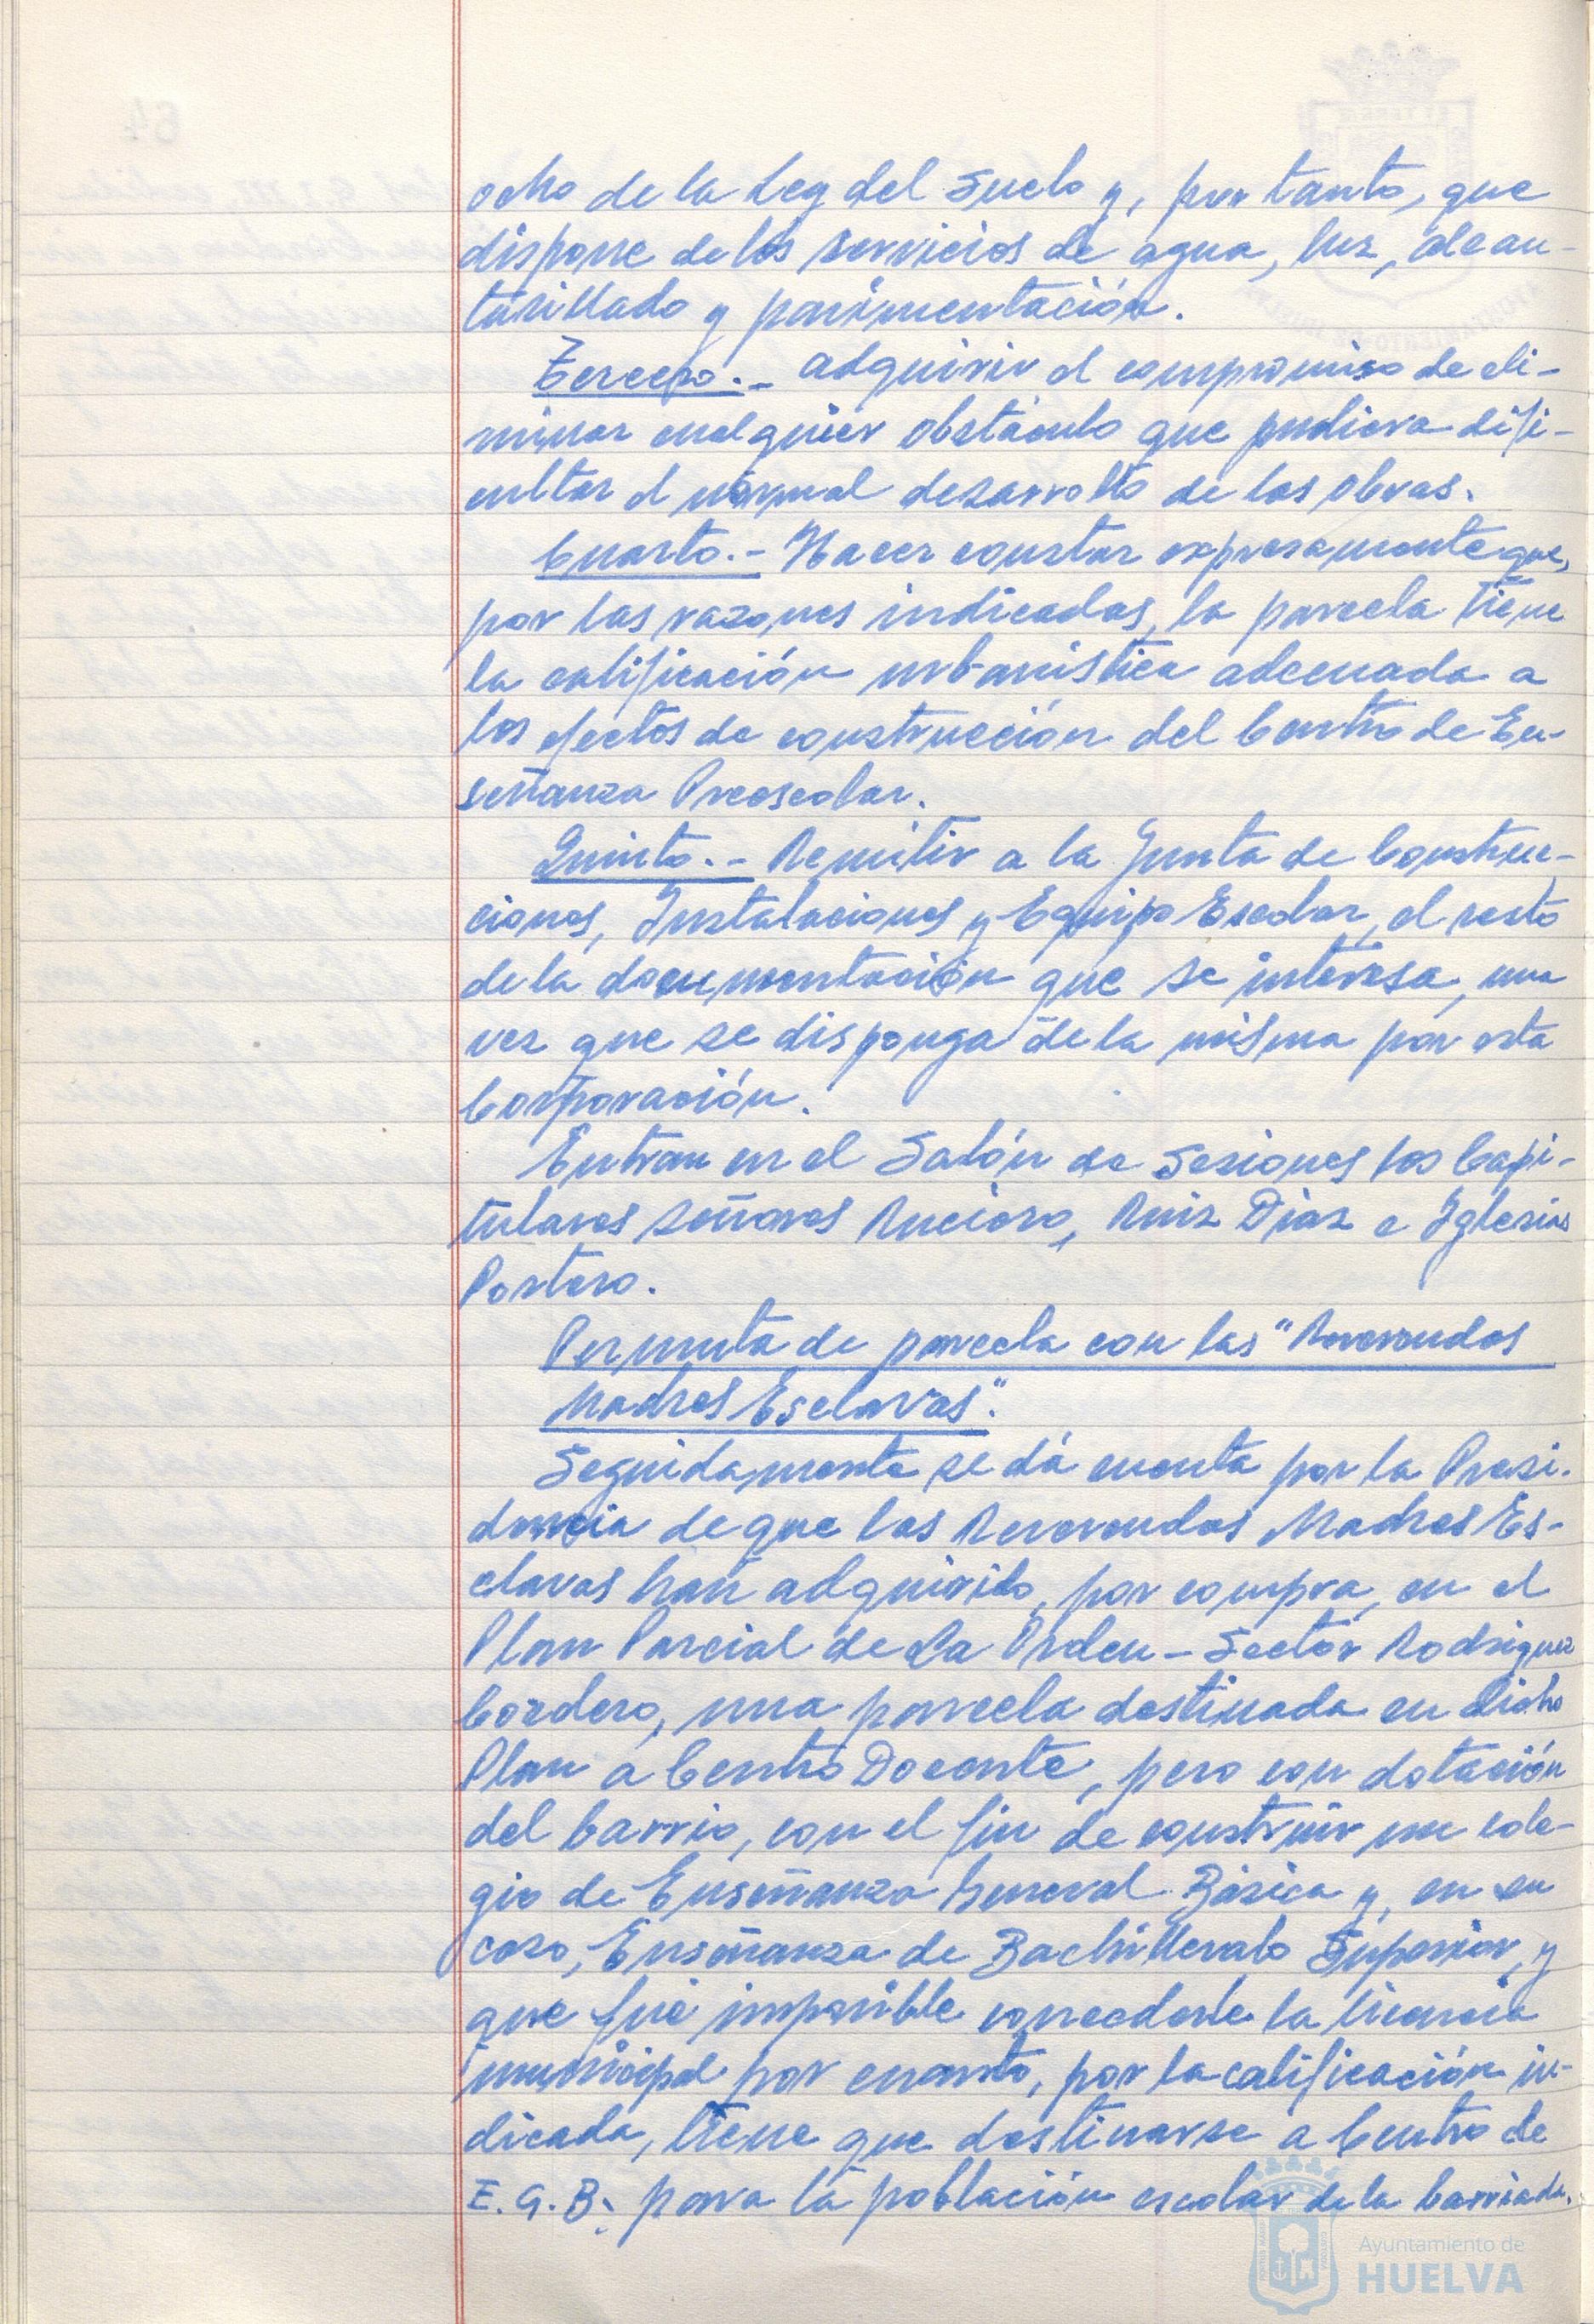 ocho de la Ley del Suelo y, por tanto, que
dispone de los servicios de agua, luz, alcan-
tarillado y pavimentación.
Tercero.- Adquirir el compromiso de eli-
minar cualquier obstáculo que pudiera difi-
cultar el normal desarrollo de las obras.
Cuarto.- Hacer constar expresamente que,
por las razones indicadas, la parcela tiene
la calificación urbanística adecuada a
los efectos de construcción del Centro de En-
señanza Preescolar.
Quinto.- Remitir a la Junta de Construc-
ciones, Instalaciones y Equipo Escolar, el resto
de la documentación que se interesa, una
vez que se disponga de la misma por esta
Corporación.
Entran en el Salón de Sesiones los Capi-
tulares señores Ruciero, Ruiz Díaz e Iglesias
Portero.
Permuta de parcela con las "Reverendas
Madres Esclavas".
Seguidamente se dá cuenta por la Presi-
dencia de que las Reverendas Madres Es-
clavas han adquirido, por compra, en el
Plan Parcial de La Orden - Sector Rodriguez
Cordero, una parcela destinada en dicho
Plan a Centro Docente, pero con dotación
del barrio, con el fin de construir un cole-
gio de Enseñanza General Básica y, en su
caso, Enseñanza de Bachillerato Superior, y
que fué imposible concederle la licencia
municipal por cuanto, por la calificación in-
dicada, tiene que destinarse a Centro de
E.G.B. para la población escolar de la barriada.
Ayuntamiento de
HUELVA